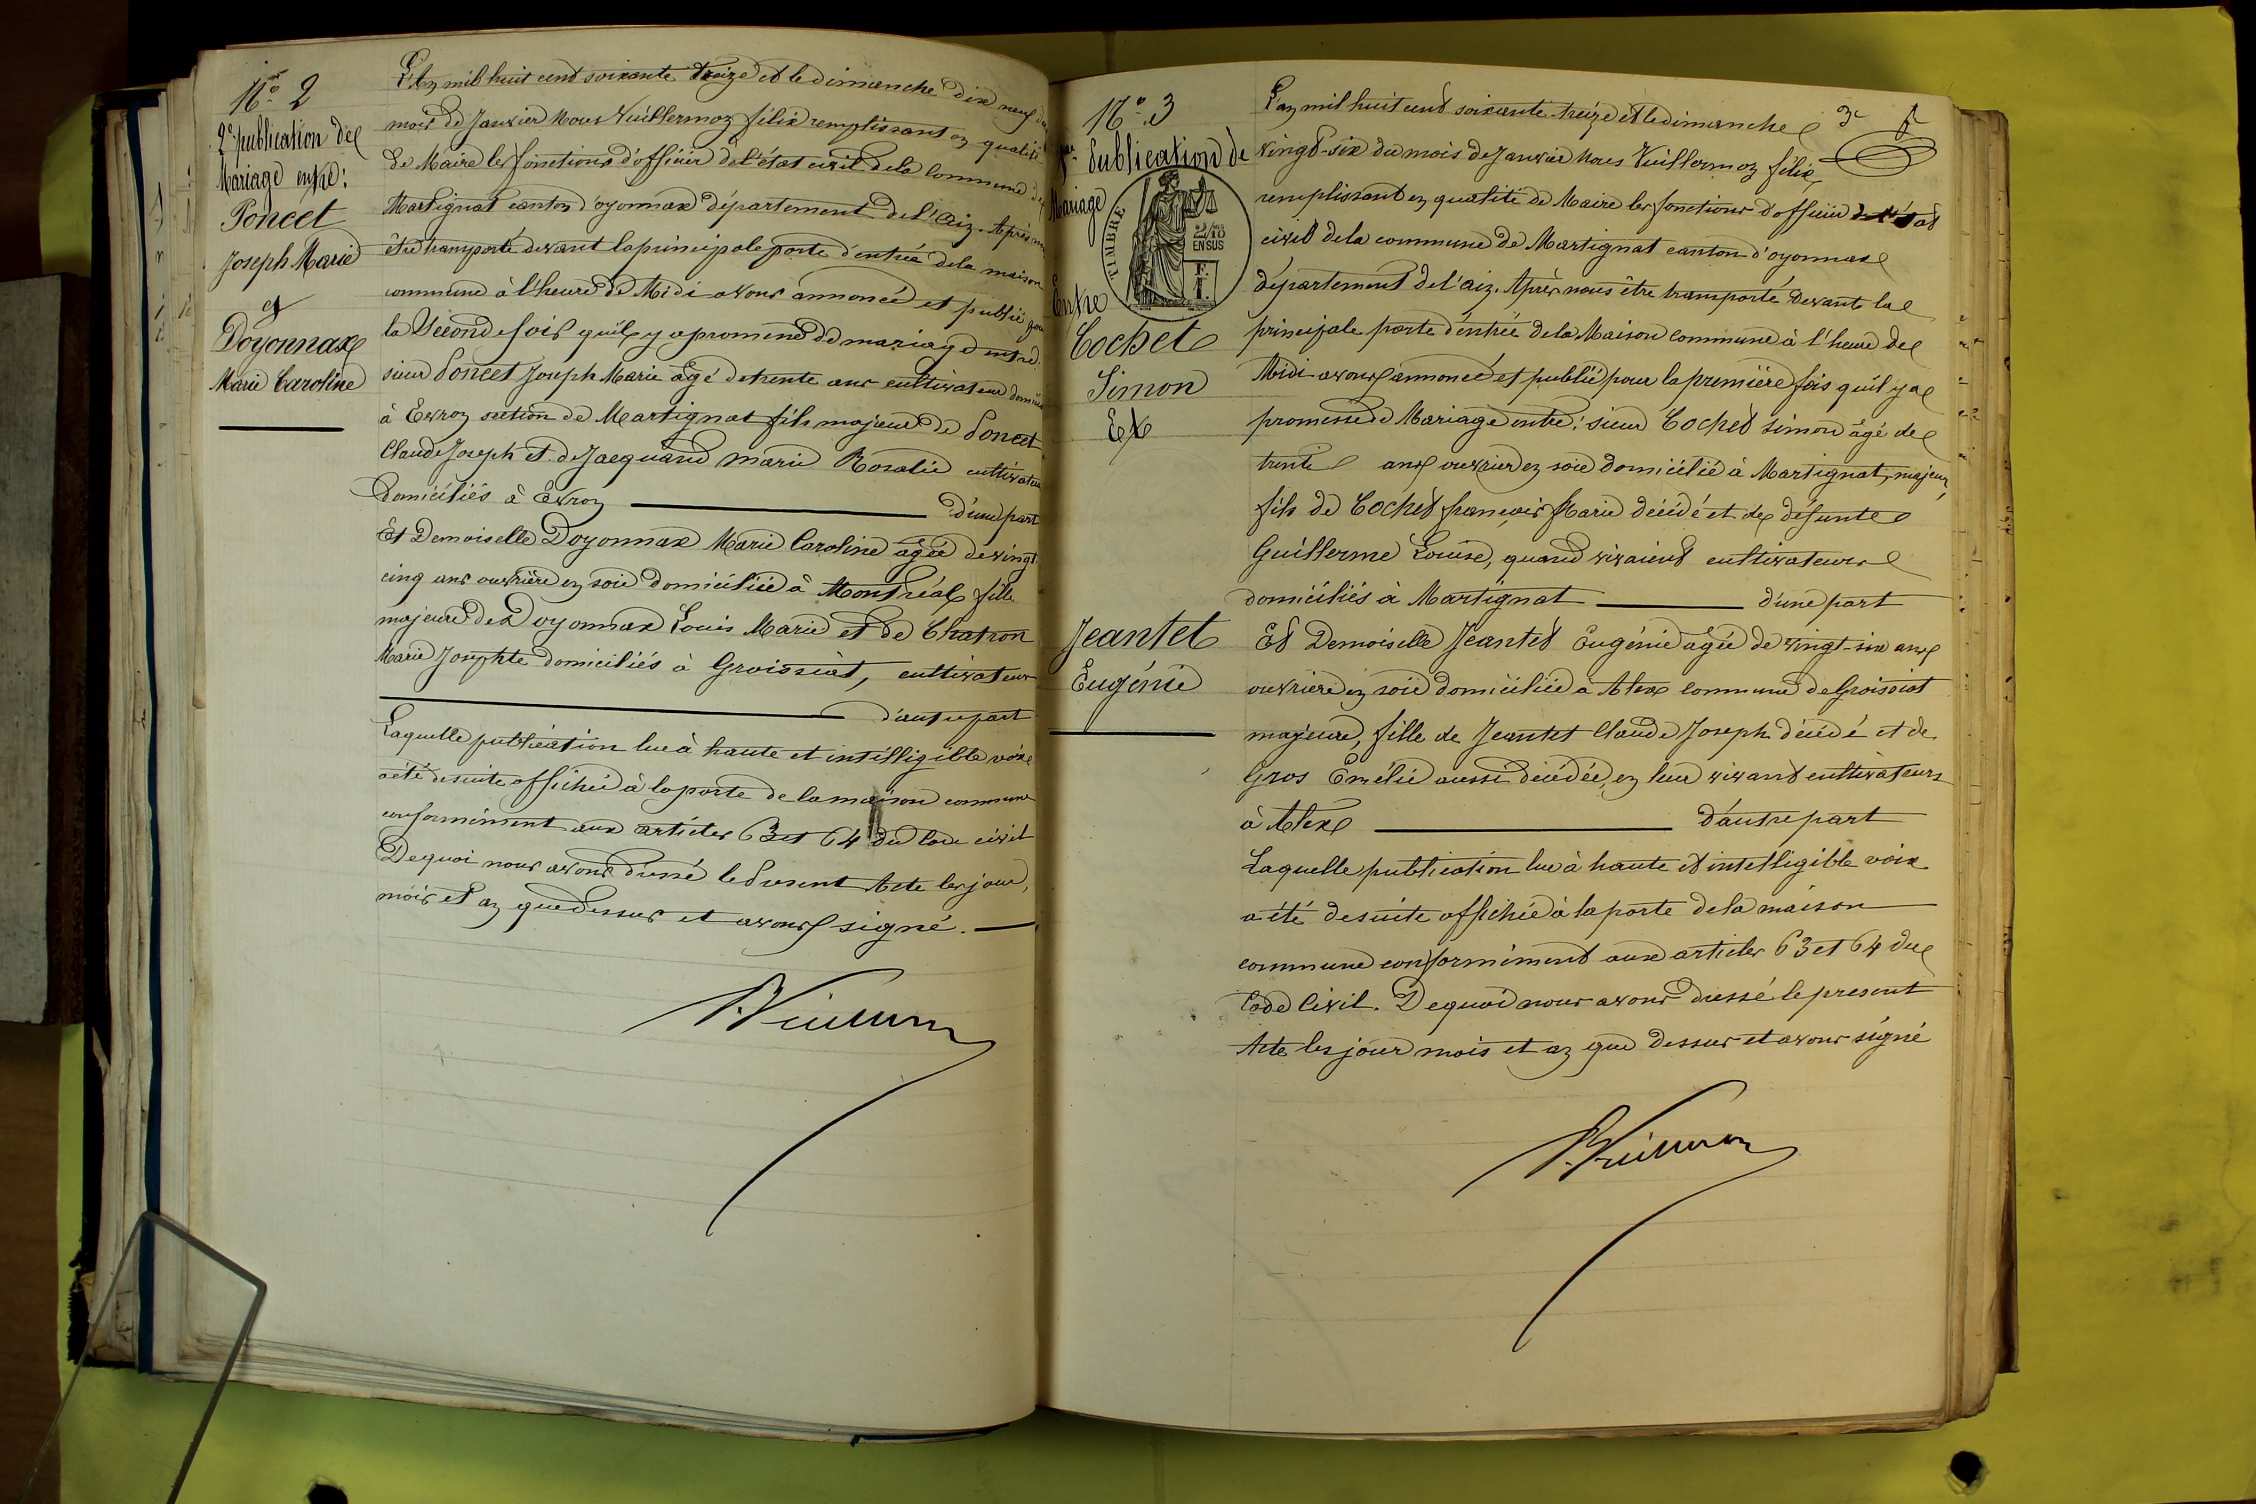 N° 2
2e publication de
Mariage entre:
Poncet
Joseph Marie
et
Doyonnax
Marie Caroline
L'an mil huit cent soixante treize et le dimanche dix neuf du
mois de Janvier Nous Vuillermoz félix remplissant en qualité
de Maire les fonctions d'officier de l'état civil de la commune de
Martignat canton d'oyonnax département de l'ain. Après nous
être transporté devant la principale porte d'entrée de la maison
commune à l'heure de Midi avons annoncé et publié pour
la Seconde fois qu'il y a promesse de mariage entre
sieur Poncet Joseph Marie âgé de trente ans cultivateur domicilié
à Evron section de Martignat fils majeur de Poncet
Claude Joseph et de Jacquand Marie Rosalie cultivateurs
domiciliés à Evron d'une part
Et Demoiselle Doyonnax Marie Caroline âgée de vingt
cinq ans ouvrière en soie domiciliée à Montréal fille
majeure de Doyonnax Louis Marie et de Chatron
Marie Josephte domiciliés à Groissiat, cultivateurs
d'autre part
Laquelle publication lue à haute et intélligible voix
a été de suite affichée à la porte de la maison commune
conformément aux articles 63 et 64 du Code civil
De quoi nous avons dressé le Present Acte les jour,
mois et an que dessus et avons signé.
F. Vuillermoz
3e
N° 3
1ère Publication de
Mariage
TIMBRE
2/10 EN SUS
Entre
Cochet
Simon
Et
Jeantet
Eugénie
L'an mil huit cent soixante-treize et le dimanche
vingt-six du mois de Janvier Nous Vuillermoz félix
remplissant en qualité de Maire les fonctions d'officier de l'état
civil de la commune de Martignat canton d'oyonnax
département de l'ain. Après nous être transporté devant la
principale porte d'entrée de la Maison commune à l'heure de
Midi avons annoncé et publié pour la première fois qu'il y a
promesse de Mariage entre: sieur Cochet Simon âgé de
trente ans ouvrier en soie domicilié à Martignat, majeur,
fils de Cochet françois Marie décédé et de défunte
Guillerme Louise, quand vivaient cultivateurs
domiciliés à Martignat d'une part
Et Demoiselle Jeantet Eugénie âgée de vingt-six ans
ouvrière en soie domiciliée à Alex commune de Groissiat
majeure, fille de Jeantet Claude Joseph décédé et de
Gros Emélie aussi décédée, en leur vivant cultivateurs
à Alex d'autre part
Laquelle publication lue à haute et intelligible voix
a été de suite affichée à la porte de la maison
commune conformément aux articles 63 et 64 du
Code Civil. De quoi nous avons dressé le present
Acte les jour mois et an que dessus et avons signé
F. Vuillermoz